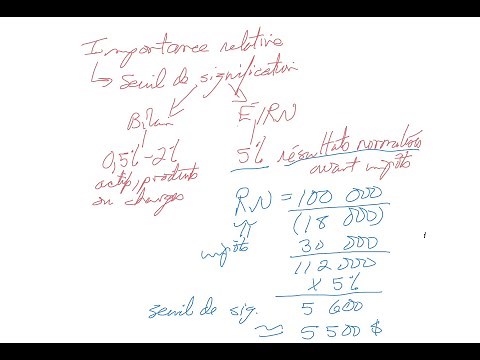 Importance relative
↳ Seuil de signification
Bilan E/RN
0,5% - 2% 5% résultats normalisés
actif, produits avant impôts
ou charges
RN = 100 000
(18 000)
impôts 30 000
112 000
x 5%
seuil de sig. 5 600
≈ 5 500 $